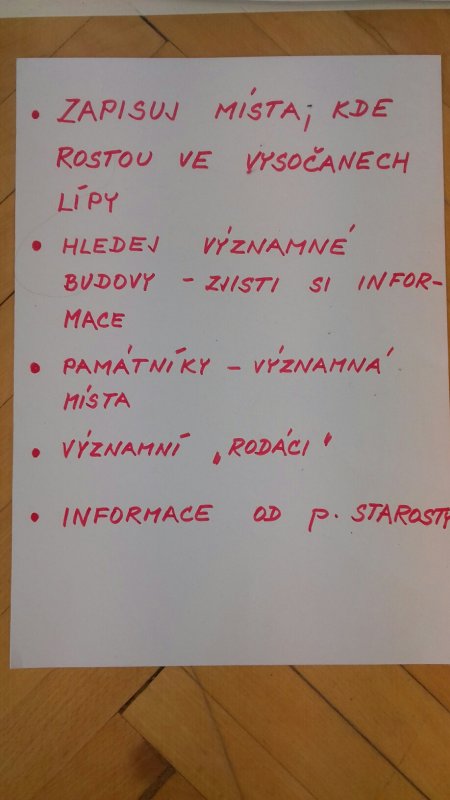 • ZAPISUJ MÍSTA, KDE
ROSTOU VE VYSOČANECH
LÍPY
• HLEDEJ VÝZNAMNÉ
BUDOVY - ZJISTI SI INFOR-
MACE
• PAMÁTNÍKY - VÝZNAMNÁ
MÍSTA
• VÝZNAMNÍ „RODÁCI"
• INFORMACE OD p. STAROSTY